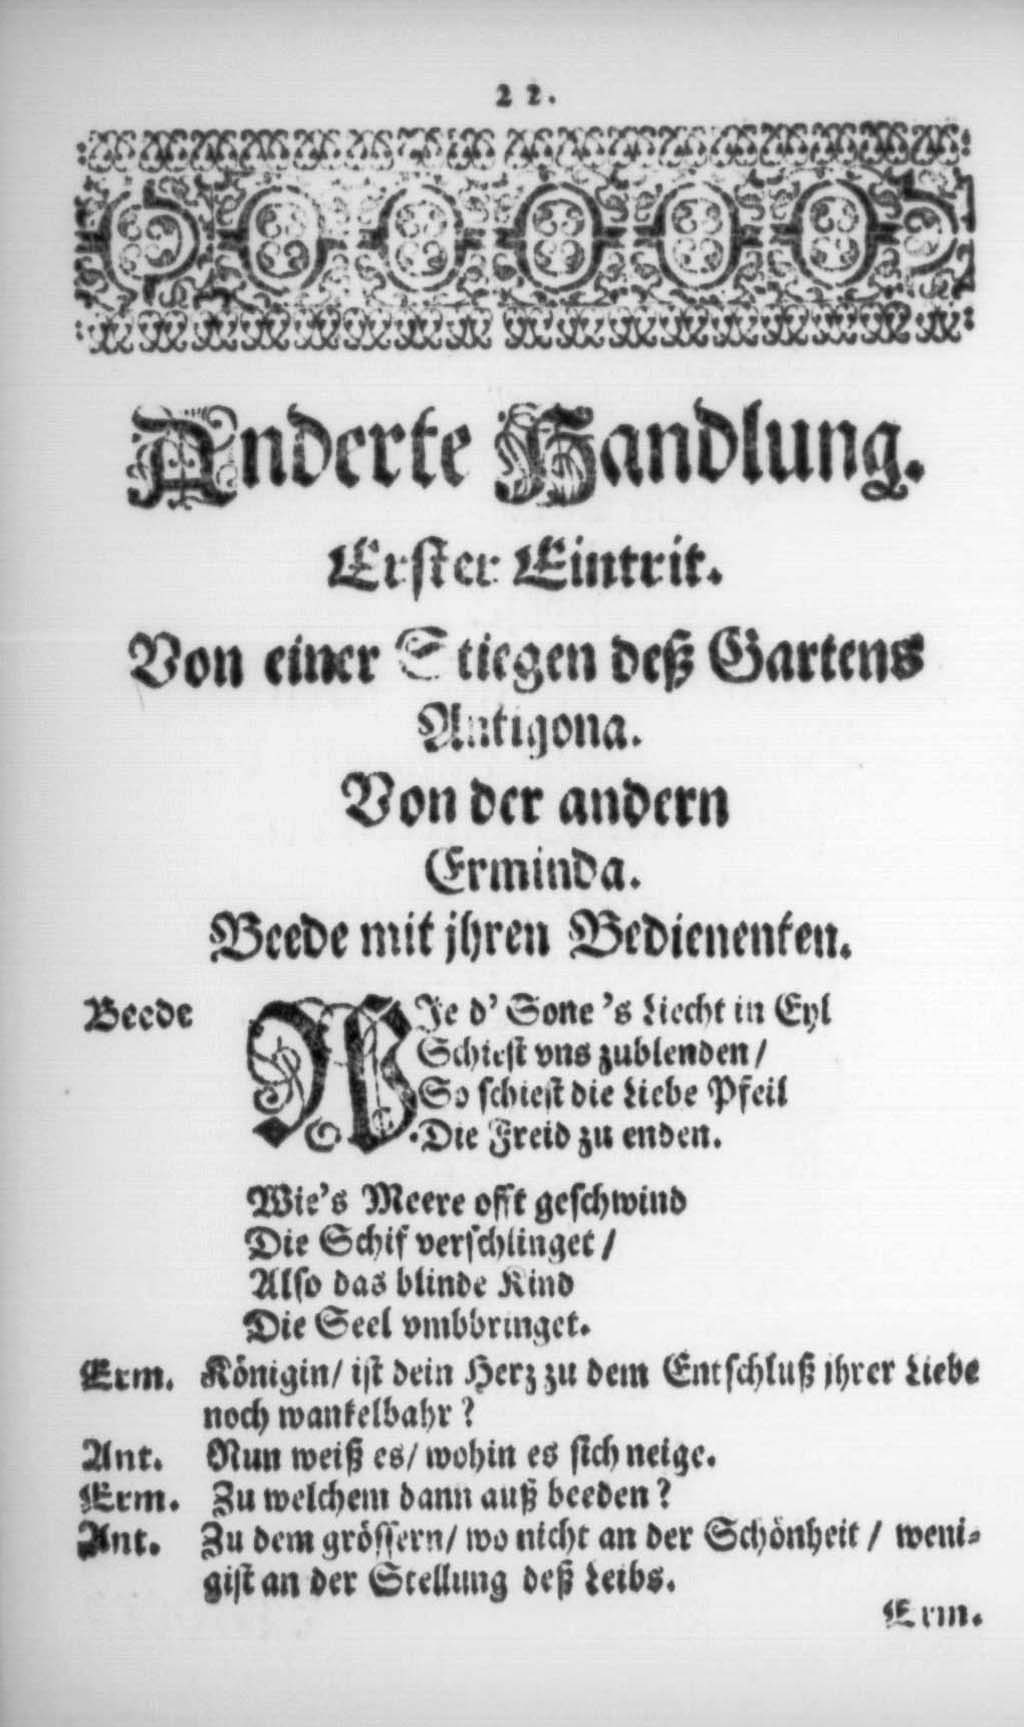 22.
Anderte Handlung.
Erster Eintrit.
Von einer Stiegen deß Gartens
Antigona.
Von der andern
Erminda.
Beede mit jhren Bedienenten.
Beede WJe d' Sone 's Liecht in Eyl
Schiest vns zublenden /
So schiest die Liebe Pfeil
Die Freid zu enden.
Wie's Meere offt geschwind
Die Schif verschlinget /
Also das blinde Kind
Die Seel vmbbringet.
Erm. Königin / ist dein Herz zu dem Entschluß jhrer Liebe
noch wankelbahr ?
Ant. Nun weiß es / wohin es sich neige.
Erm. Zu welchem dann auß beeden ?
Ant. Zu dem grössern / wo nicht an der Schönheit / weni-
gist an der Stellung deß Leibs.
Erm.